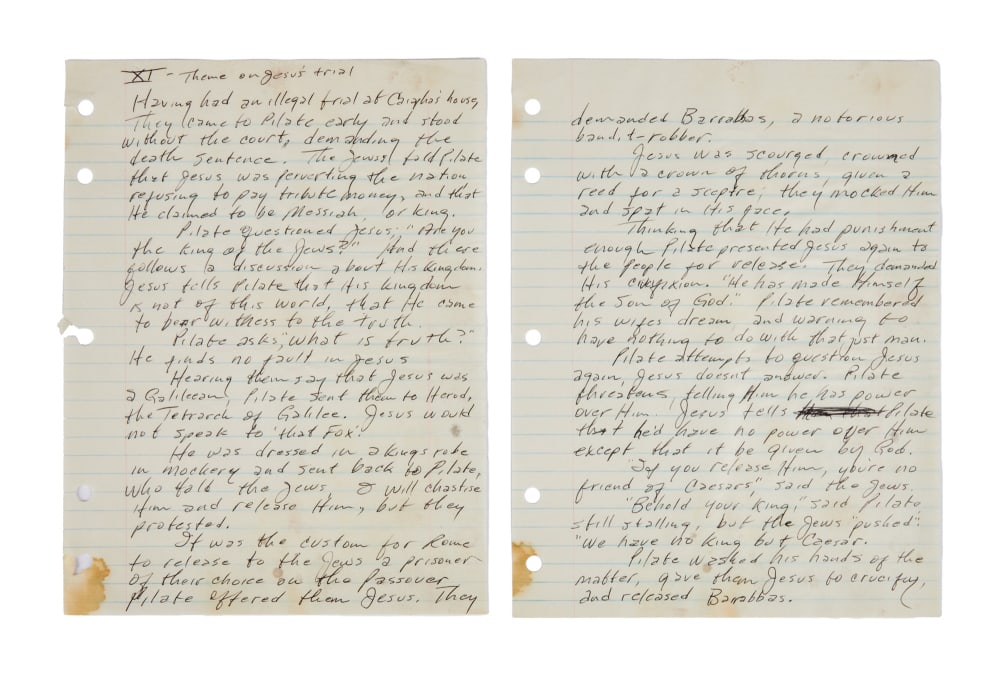 XI - Theme on Jesus's trial
Having had an illegal trial at Caiphas house,
They came to Pilate early and stood
without the court, demanding the
death sentence. The Jews told Pilate
that Jesus was perverting the nation
refusing to pay tribute money, and that
He claimed to be Messiah, or king.
Pilate questioned Jesus; "Are you
the king of the Jews?" And there
follows a discussion about His kingdom.
Jesus tells Pilate that His kingdom
is not of this world, that He came
to bear witness to the truth.
Pilate asks, "what is truth?"
He finds no fault in Jesus
Hearing them say that Jesus was
a Galilean, Pilate sent them to Herod,
the Tetrarch of Galilee. Jesus would
not speak to 'that Fox'.
He was dressed in a kings robe
in mockery and sent back to Pilate,
who told the Jews I will chastise
Him and release Him, but they
protested.
It was the custom for Rome
to release to the Jews a prisoner
of their choice on the Passover
Pilate offered them Jesus. They
demanded Barabbas, a notorious
bandit-robber.
Jesus was scourged, crowned
with a crown of thorns, given a
reed for a sceptre; they mocked Him
and spat in His face.
Thinking that He had punishment
enough Pilate presented Jesus again to
the people for release. They demanded
His cruxifixion. "He has made Himself
the Son of God." Pilate remembered
his wifes dream, and warning to
have nothing to do with that just man.
Pilate attempts to question Jesus
again, Jesus doesnt answer. Pilate
threatens, telling Him he has power
over Him. Jesus tells Pilate
that he'd have no power over Him
except that it be given by God.
"If you release Him, you're no
friend of Caesars", said the Jews.
"Behold your King," said Pilate
still stalling, but the Jews "pushed".
"We have no King but Caesar.
Pilate washed his hands of the
matter, gave them Jesus to crucify,
and released Barabbas.